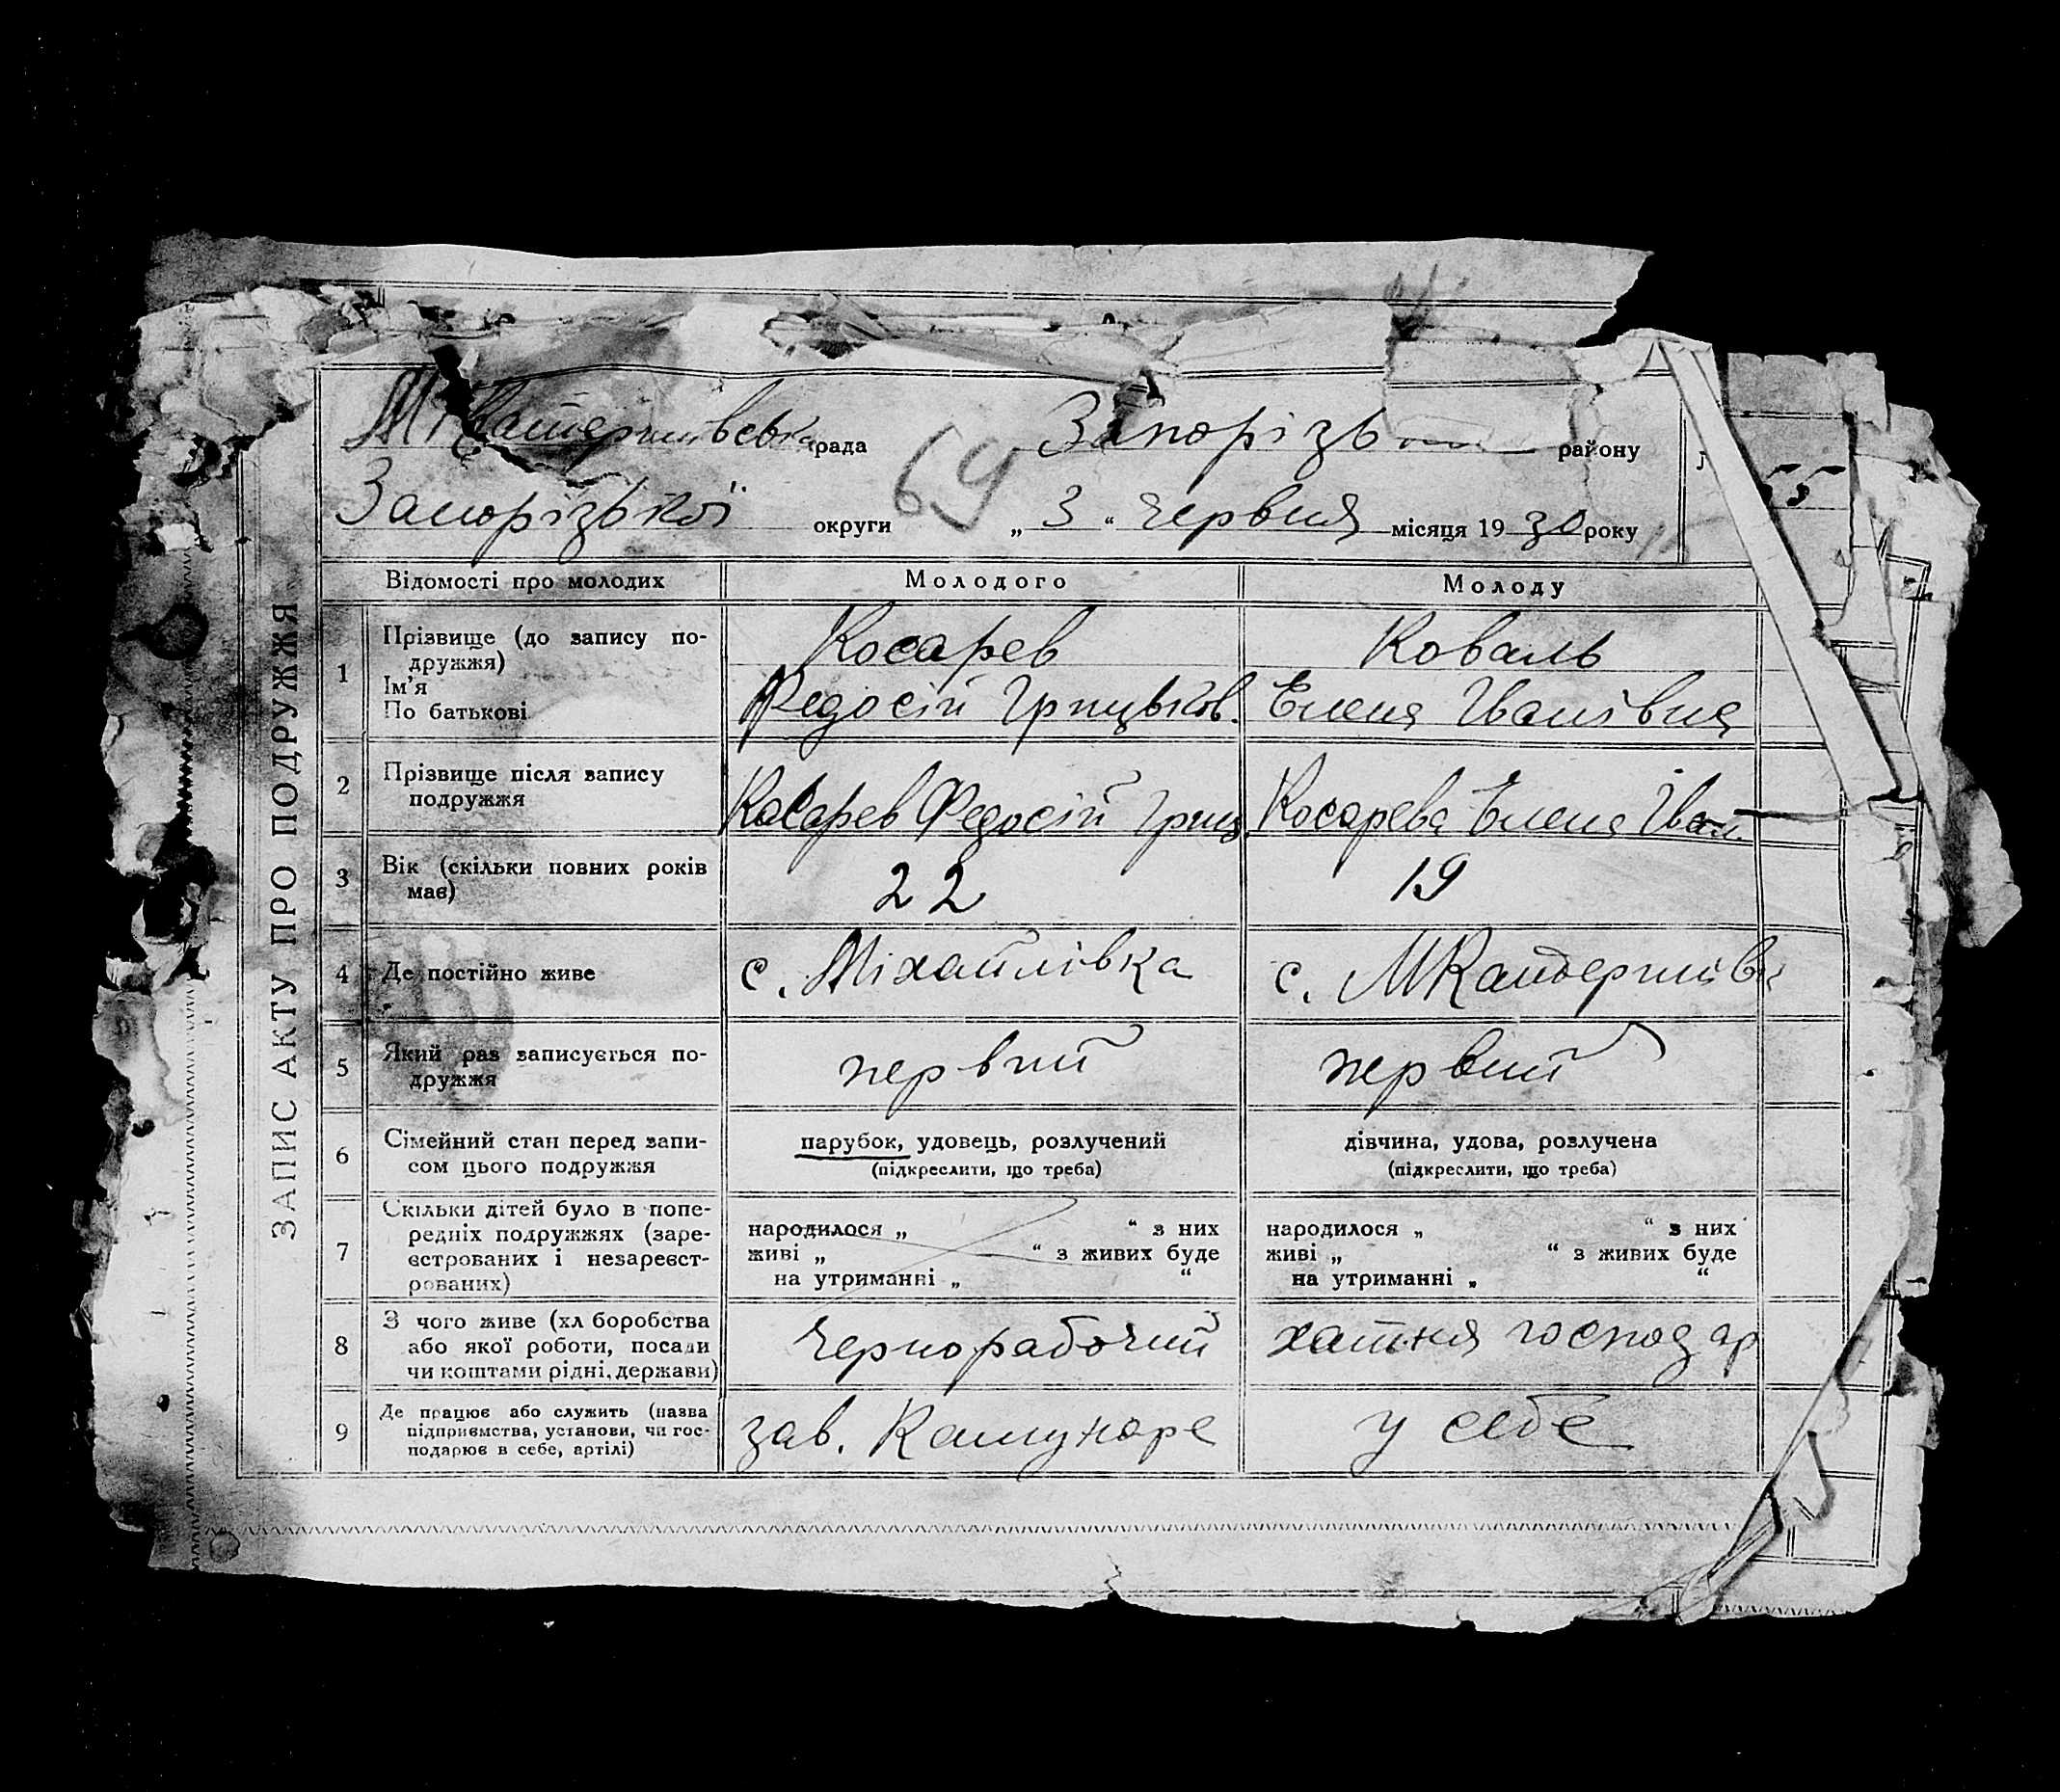 ЗАПИС АКТУ ПРО ПОДРУЖЖЯ
рада Запорізь району
69
55
Запорізької округи „ 3 “ червня місяця 19 30 року
Відомості про молодих Молодого Молоду
1 Прізвище (до запису по-
дружжя)
Ім'я
По батькові
Косарев
Федосій Грицьков.
Коваль
Елена Іванівна
2 Прізвище після запису
подружжя
Косарев Федосій Гриц.
Косарева Елена Іван
3 Вік (скільки повних років
має)
22
19
4 Де постійно живе
с. Міхайлівка
с. МКандершівк
5 Який раз записується по-
дружжя
первий
первий
6 Сімейний стан перед запи-
сом цього подружжя
парубок, удовець, розлучений
(підкреслити, що треба)
дівчина, удова, розлучена
(підкреслити, що треба)
7 Скільки дітей було в попе-
редніх подружжях (заре-
єстрованих і незареєст-
рованих)
народилося „ “ з них
живі „ “ з живих буде
на утриманні „ “
народилося „ “ з них
живі „ “ з живих буде
на утриманні „ “
8 З чого живе (хліборобства
або якої роботи, посади
чи коштами рідні, держави)
чернорабочий
хатня господар
9 Де працює або служить (назва
підприємства, установи, чи гос-
подарює в себе, артілі)
зав. Камунаре
у себе